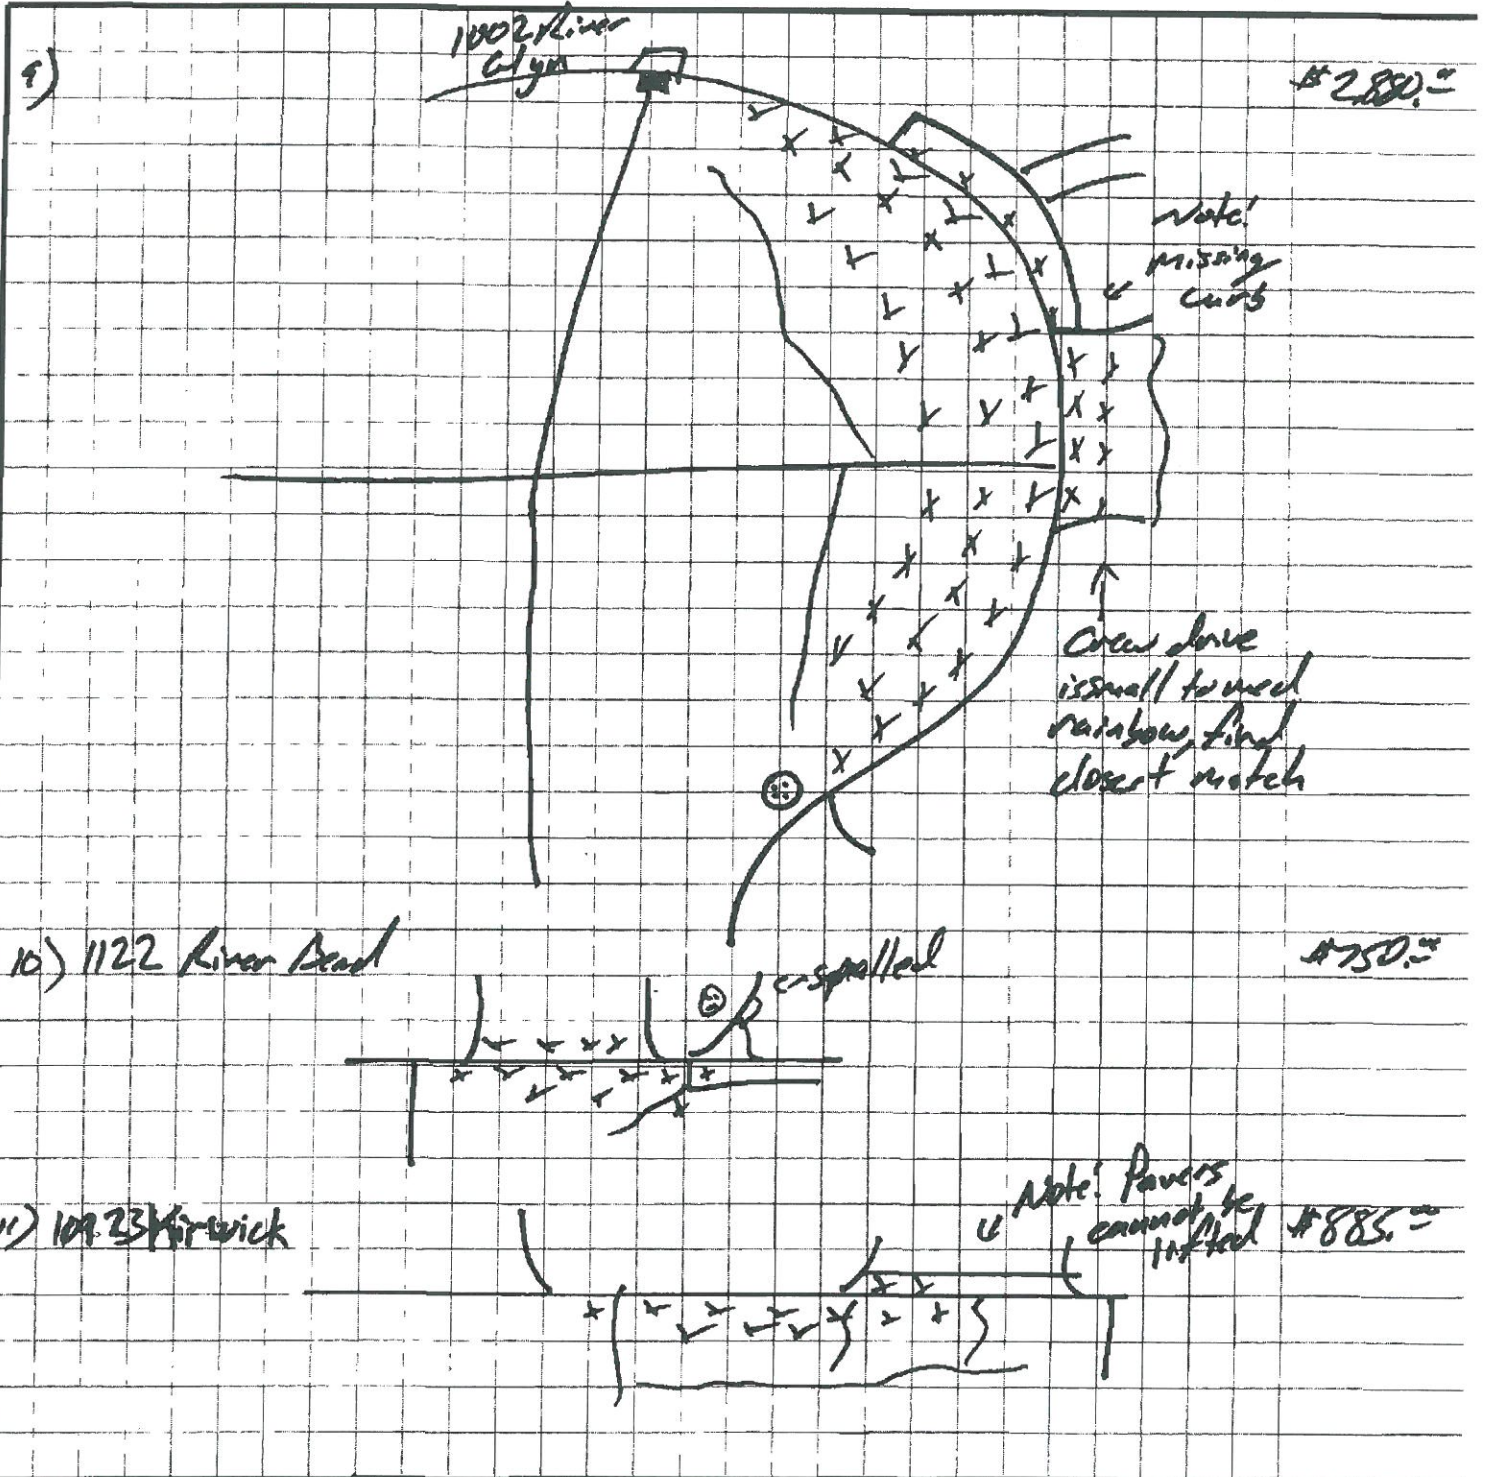 9)
1002 River
Glyn
$2,880.00
Note!
Missing
curb
drive
is small to med
rainbow, find
closest match
10) 1122 River Bend
spalled
$750.00
11) 10923 Kirwick
Note! Pavers
cannot be
lifted
$885.00